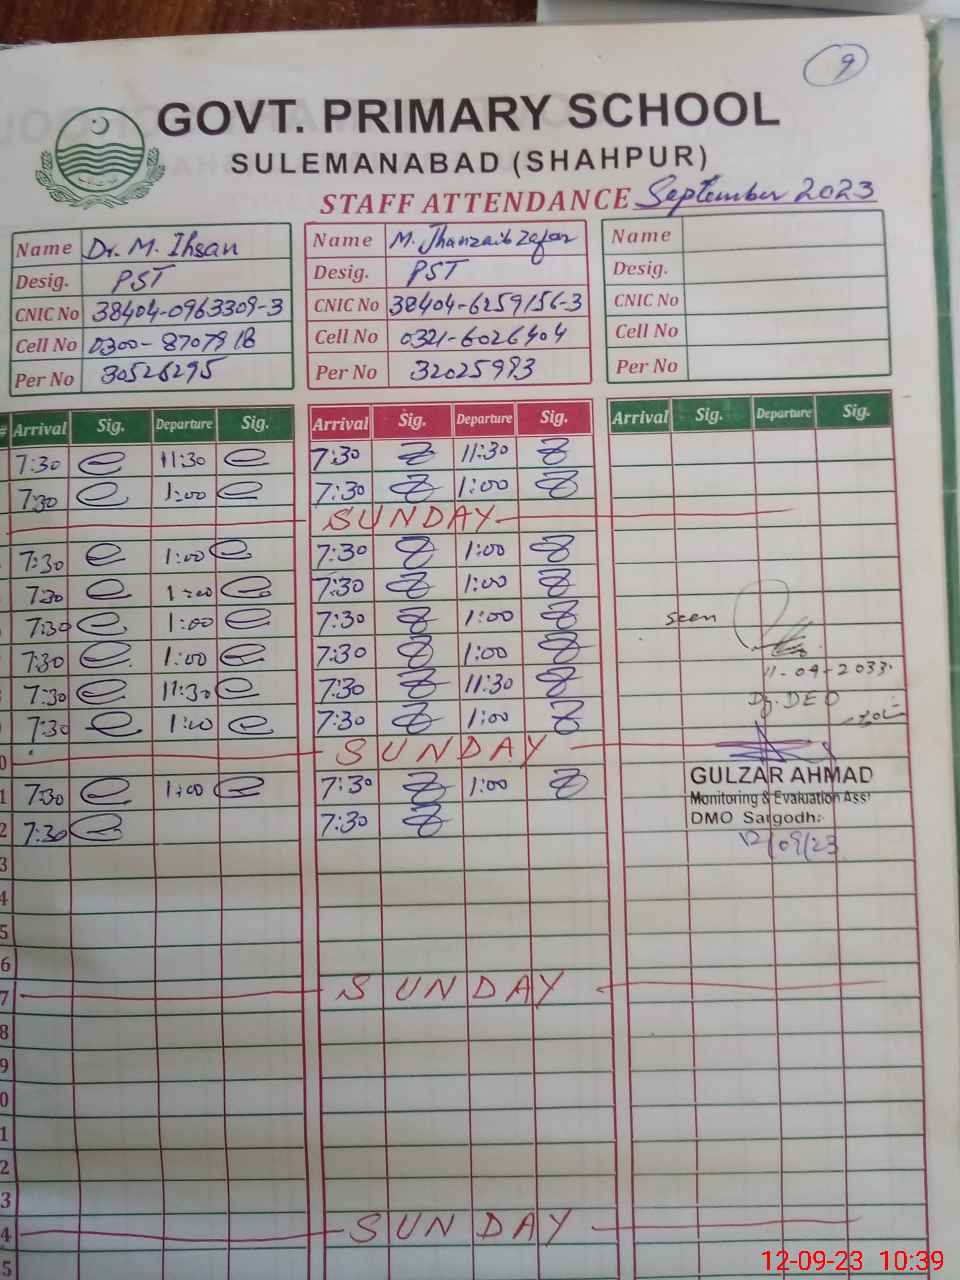 9
GOVT. PRIMARY SCHOOL
SULEMANABAD (SHAHPUR)
STAFF ATTENDANCE September 2023
Name Dr. M. Ihsan Name M. Jhanzaib Zafar Name
Desig. PST Desig. PST Desig.
CNIC No 38404-0963309-3 CNIC No 38404-6259156-3 CNIC No
Cell No 0300-8707918 Cell No 0321-6026404 Cell No
Per No 30526295 Per No 32025983 Per No
# Arrival Sig. Departure Sig. Arrival Sig. Departure Sig. Arrival Sig. Departure Sig.
7:30 11:30 7:30 11:30
7:30 1:00 7:30 1:00
SUNDAY
7:30 1:00 7:30 1:00
7:30 1:00 7:30 1:00
7:30 1:00 7:30 1:00 seen
7:30 1:00 7:30 1:00
7:30 11:30 7:30 11:30 11-09-2033
7:30 1:00 7:30 1:00 Dy. DEO
0 SUNDAY
1 7:30 1:00 7:30 1:00 GULZAR AHMAD
Monitoring & Evaluation Asst
2 7:30 7:30 DMO Sargodh:
12/09/23
3
4
5
6
7 SUNDAY
8
9
0
1
2
3
4 SUNDAY
5
12-09-23 10:39